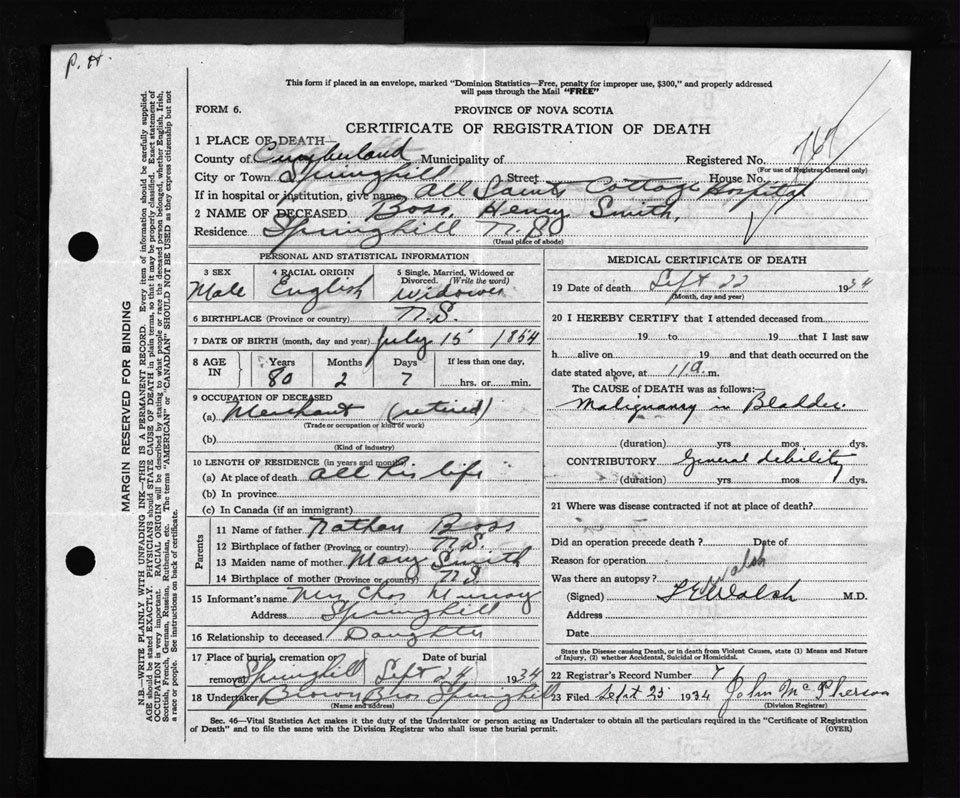 P. H.
This form if placed in an envelope, marked "Dominion Statistics—Free, penalty for improper use, $300," and properly addressed
will pass through the Mail "FREE"
FORM 6.
PROVINCE OF NOVA SCOTIA
CERTIFICATE OF REGISTRATION OF DEATH
1 PLACE OF DEATH—
County of Cumberland Municipality of Registered No. 767
(For use of Registrar General only)
City or Town Springhill Street House No.
If in hospital or institution, give name All Saints Cottage Hospital
2 NAME OF DECEASED Boss, Henry Smith,
Residence Springhill N.S.
(Usual place of abode)
PERSONAL AND STATISTICAL INFORMATION
3 SEX 4 RACIAL ORIGIN 5 Single, Married, Widowed or Divorced. (Write the word)
Male English Widower
6 BIRTHPLACE (Province or country) N.S.
7 DATE OF BIRTH (month, day and year) July 15 1854
8 AGE IN Years Months Days If less than one day,
80 2 7 hrs. or min.
9 OCCUPATION OF DECEASED
(a) Merchant (retired)
(Trade or occupation or kind of work)
(b)
(Kind of industry)
10 LENGTH OF RESIDENCE (in years and months)
(a) At place of death all his life
(b) In province
(c) In Canada (if an immigrant)
Parents
11 Name of father Nathan Boss
12 Birthplace of father (Province or country) N.S.
13 Maiden name of mother Mary Smith
14 Birthplace of mother (Province or county) N.S.
15 Informant's name Mrs Chas Murray
Address Springhill
16 Relationship to deceased Daughter
17 Place of burial, cremation or Date of burial
removal Springhill Sept 24 1934
18 Undertaker Brown Bros Springhill
(Name and address)
MEDICAL CERTIFICATE OF DEATH
19 Date of death Sept 22 1934
(Month, day and year)
20 I HEREBY CERTIFY that I attended deceased from
19 to 19 that I last saw
h alive on 19 and that death occurred on the
date stated above, at 11 a. m.
The CAUSE of DEATH was as follows:—
Malignancy in Bladder.
(duration) yrs mos dys.
CONTRIBUTORY General debility
(duration) yrs mos dys.
21 Where was disease contracted if not at place of death?
Did an operation precede death? Date of
Reason for operation
Was there an autopsy? Walsh
(Signed) Walsh M.D.
Address
Date
State the Disease causing Death, or in death from Violent Causes, state (1) Means and Nature
of Injury, (2) whether Accidental, Suicidal or Homicidal.
22 Registrar's Record Number 7
23 Filed Sept 25 1934 John McPherson
(Division Registrar)
Sec. 46—Vital Statistics Act makes it the duty of the Undertaker or person acting as Undertaker to obtain all the particulars required in the "Certificate of Registration
of Death" and to file the same with the Division Registrar who shall issue the burial permit. (OVER)
MARGIN RESERVED FOR BINDING
N.B.—WRITE PLAINLY WITH UNFADING INK—THIS IS A PERMANENT RECORD. Every item of information should be carefully supplied.
AGE should be stated EXACTLY. PHYSICIANS should STATE CAUSE OF DEATH in plain terms, so that it may be properly classified. Exact statement of
OCCUPATION is very important. RACIAL ORIGIN will be described by stating to what people or race the deceased person belonged, whether English, Irish,
Scottish, French, German, Russian, Ruthenian, etc. The terms "AMERICAN" or "CANADIAN" SHOULD NOT BE USED as they express citizenship but not
a race or people. See instructions on back of certificate.